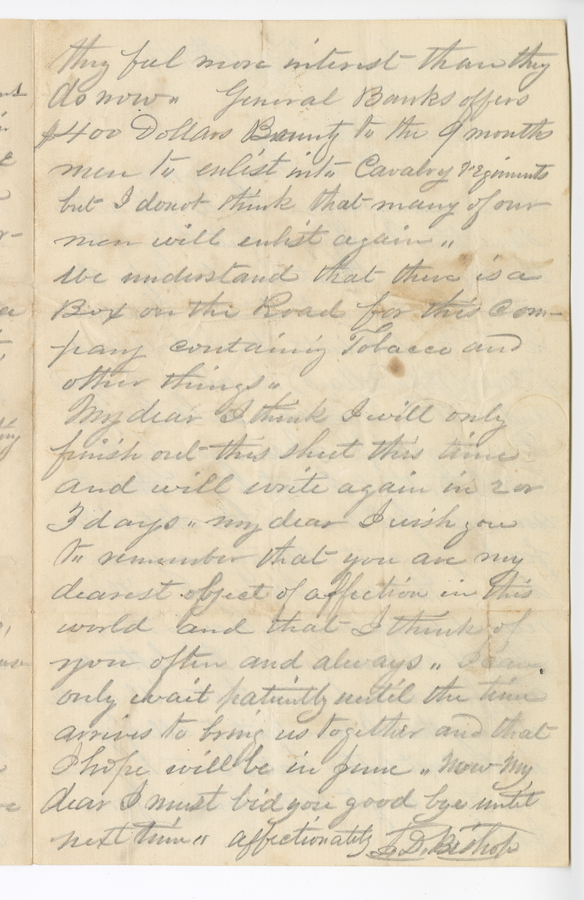 they feel more interest than they
do now " General Banks offers
$400 Dollars Bounty to the 9 months
men to enlist into Cavalry regiments
but I do not think that many of our
men will enlist again "
We understand that there is a
Box on the Road for this Com-
pany containing Tobacco and
other things "
My dear I think I will only
finish out this sheet this time
and will write again in 2 or
3 days " my dear I wish you
to remember that you are my
dearest object of affection in this
world and that I think of
you often and always " I can
only wait patiently until the time
arrives to bring us together and that
I hope will be in June " Now My
dear I must bid you good bye until
next time " affectionately L. D. Bishop